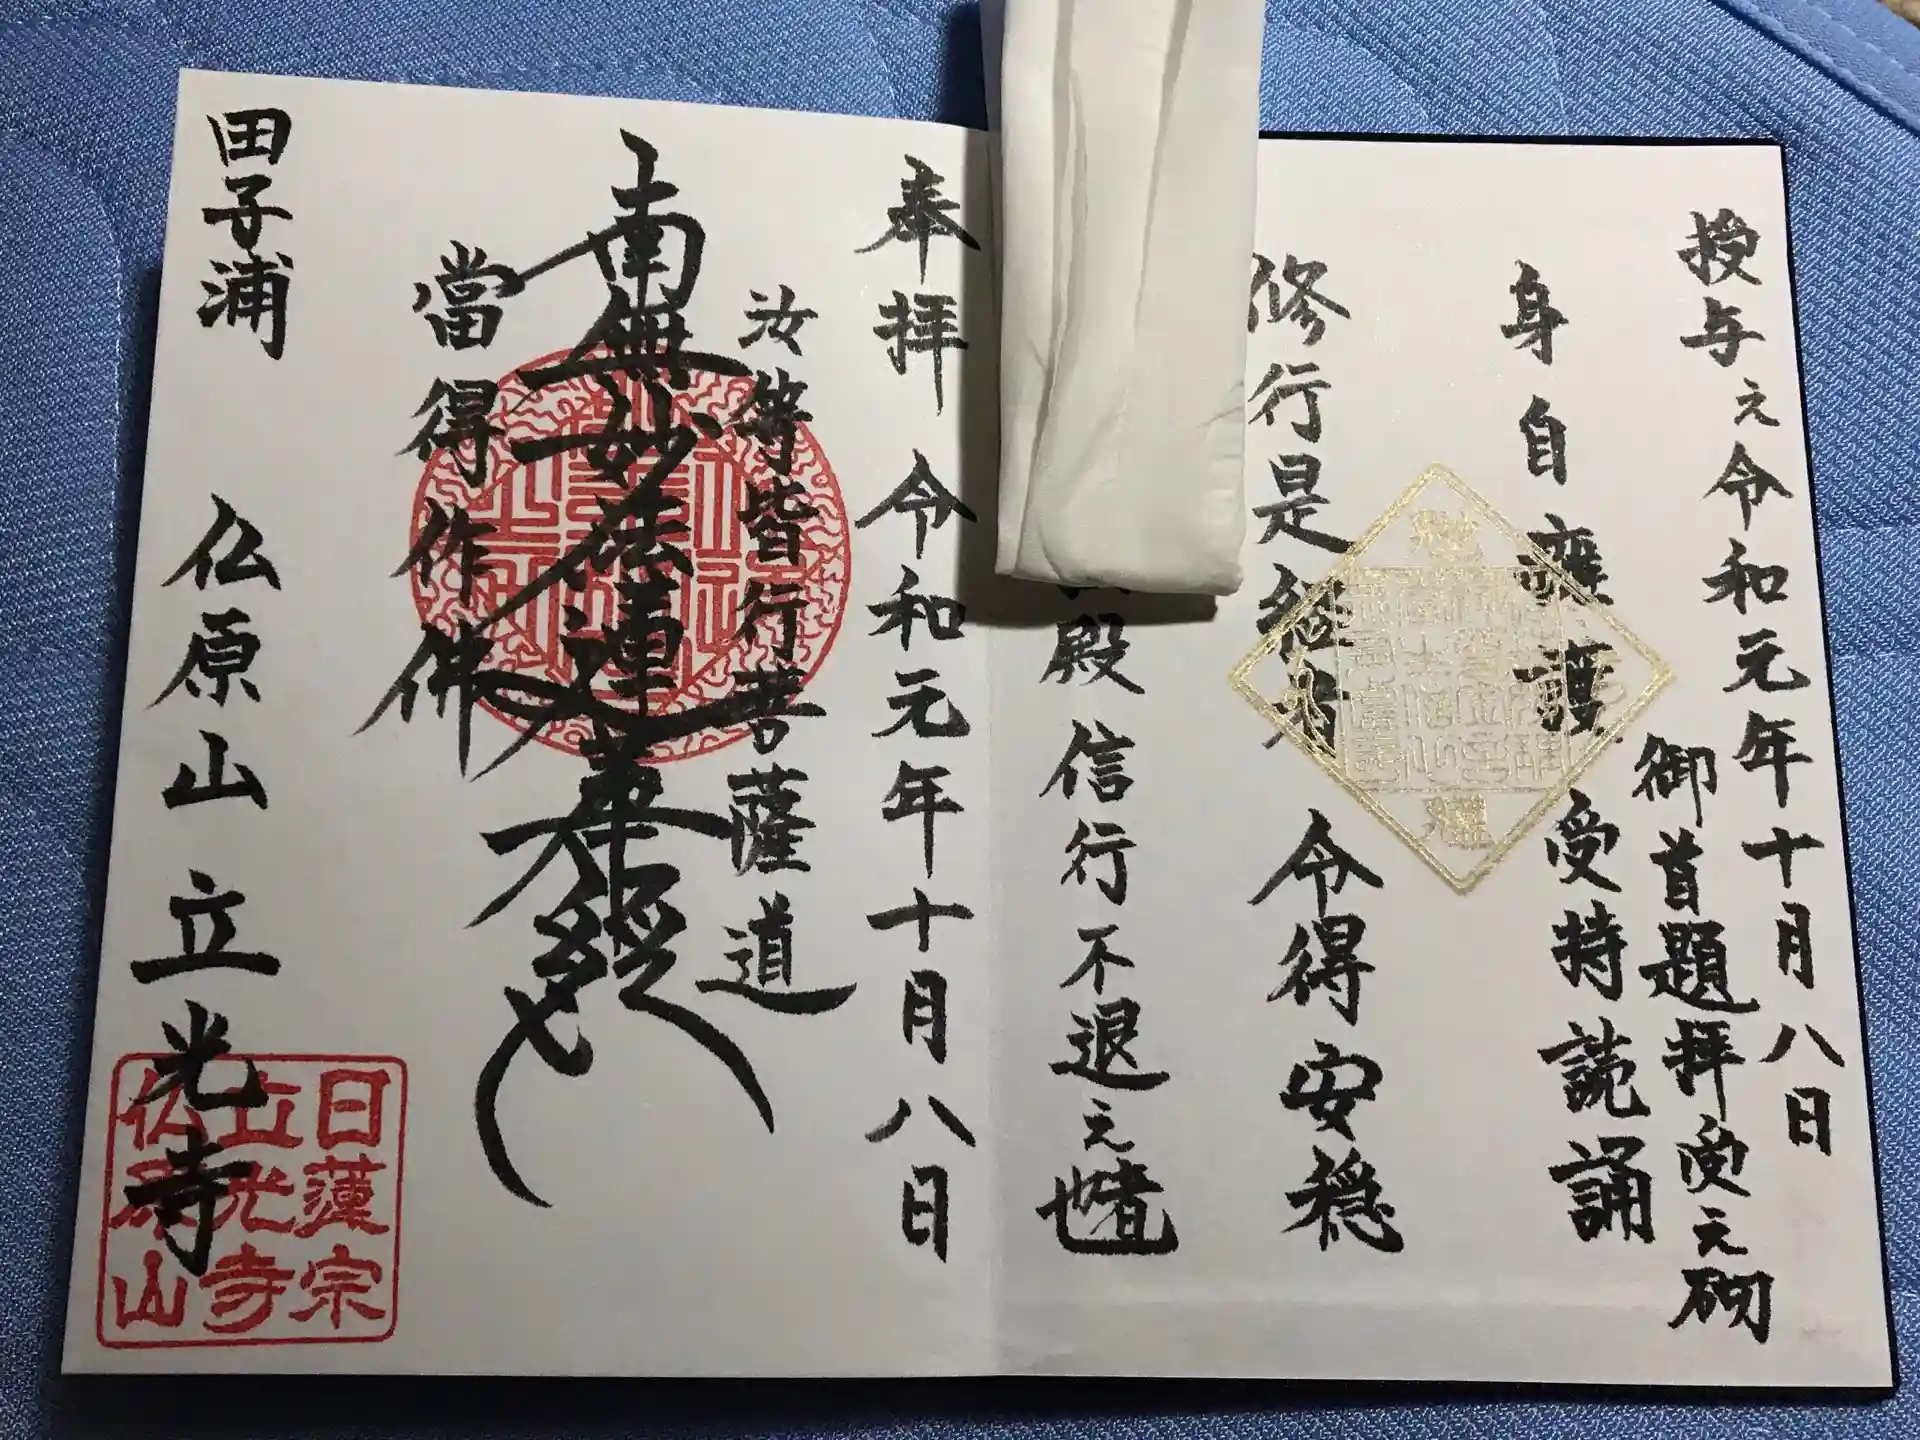 授与之令和元年十月八日
御首題拝受之砌
身自擁護受持読誦
修行是経者令得安穏
殿信行不退之也
奉拝令和元年十月八日
汝等皆行菩薩道
南無妙法蓮華経
當得作佛
田子浦 仏原山立光寺
日蓮宗
立光寺
仏原山